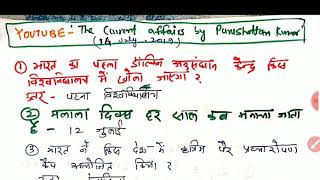 YOUTUBE:- The Current affairs by Purushottam Kumar
(14 July - 2019)
① भारत का पहला डॉल्फिन अनुसंधान केन्द्र किस
विश्वविद्यालय में खोला जाएगा?
उत्तर - पटना विश्वविद्यालय
② मलाला दिवस हर साल कब मनाया जाता
है - 12 जुलाई
③ भारत ने किस देश में कृत्रिम पैर प्रत्यारोपण
कैंप आयोजित किया?